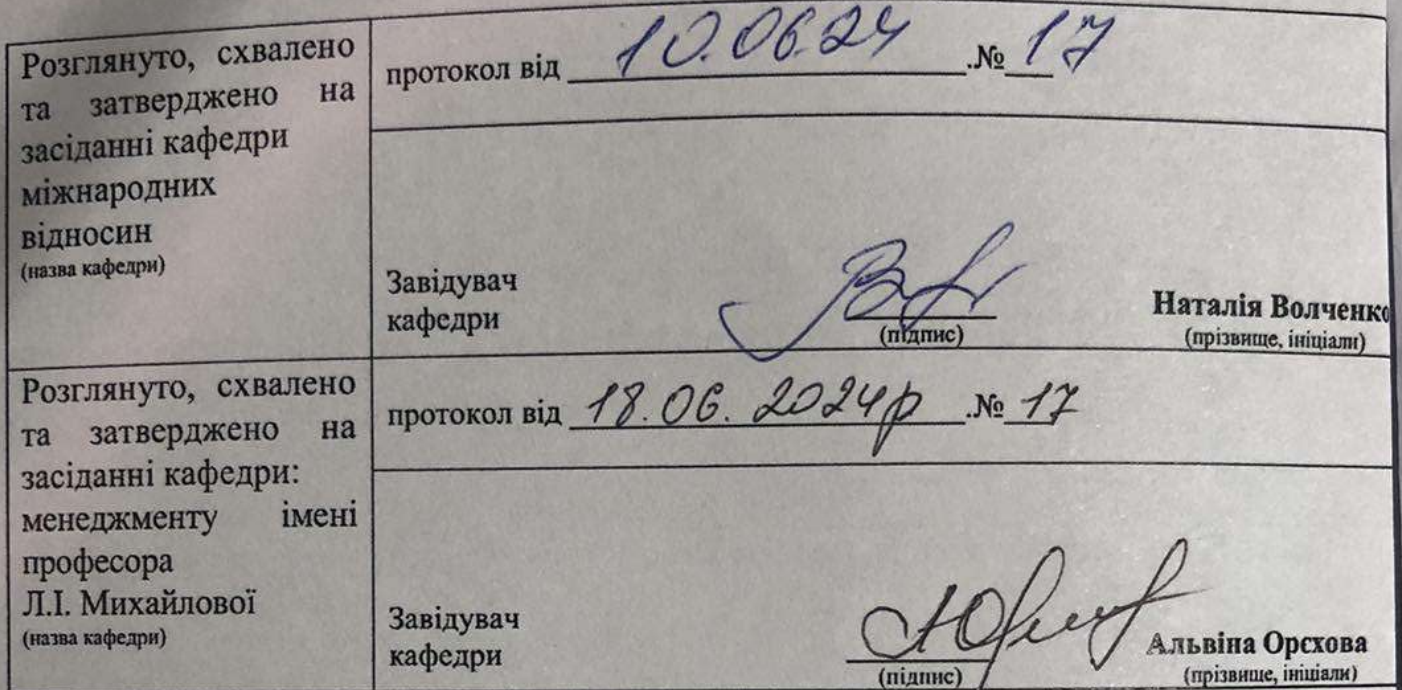 Розглянуто, схвалено
та затверджено на
засіданні кафедри
міжнародних
відносин
(назва кафедри)
протокол від 10.06.24 .№ 17
Завідувач
кафедри
(підпис)
Наталія Волченко
(прізвище, ініціали)
Розглянуто, схвалено
та затверджено на
засіданні кафедри:
менеджменту імені
професора
Л.І. Михайлової
(назва кафедри)
протокол від 18.06. 2024р .№ 17
Завідувач
кафедри
(підпис)
Альвіна Орєхова
(прізвище, ініціали)